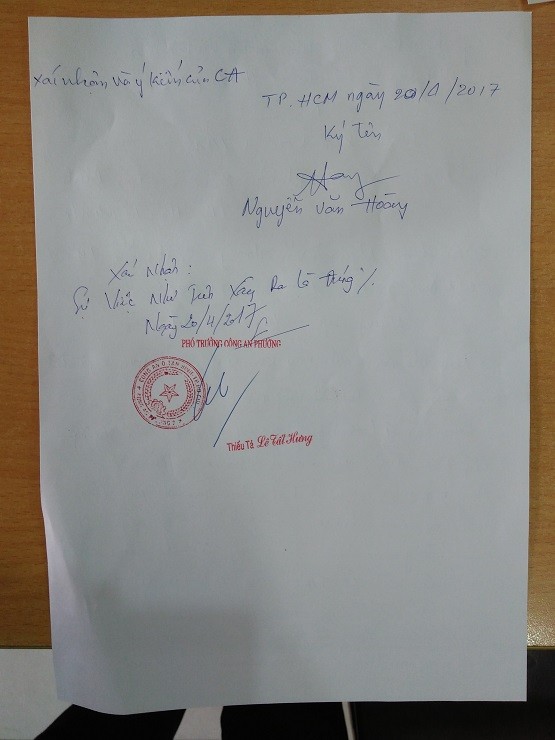 Xác nhận và ý kiến của CA
TP. HCM ngày 20/4/2017
Ký tên
Nguyễn Văn Hoàng
Xác Nhận:
Sự Việc Như Trên Xảy Ra Là Đúng ./.
Ngày 20/4/2017
PHÓ TRƯỞNG CÔNG AN PHƯỜNG
Thiếu Tá Lê Tất Hưng